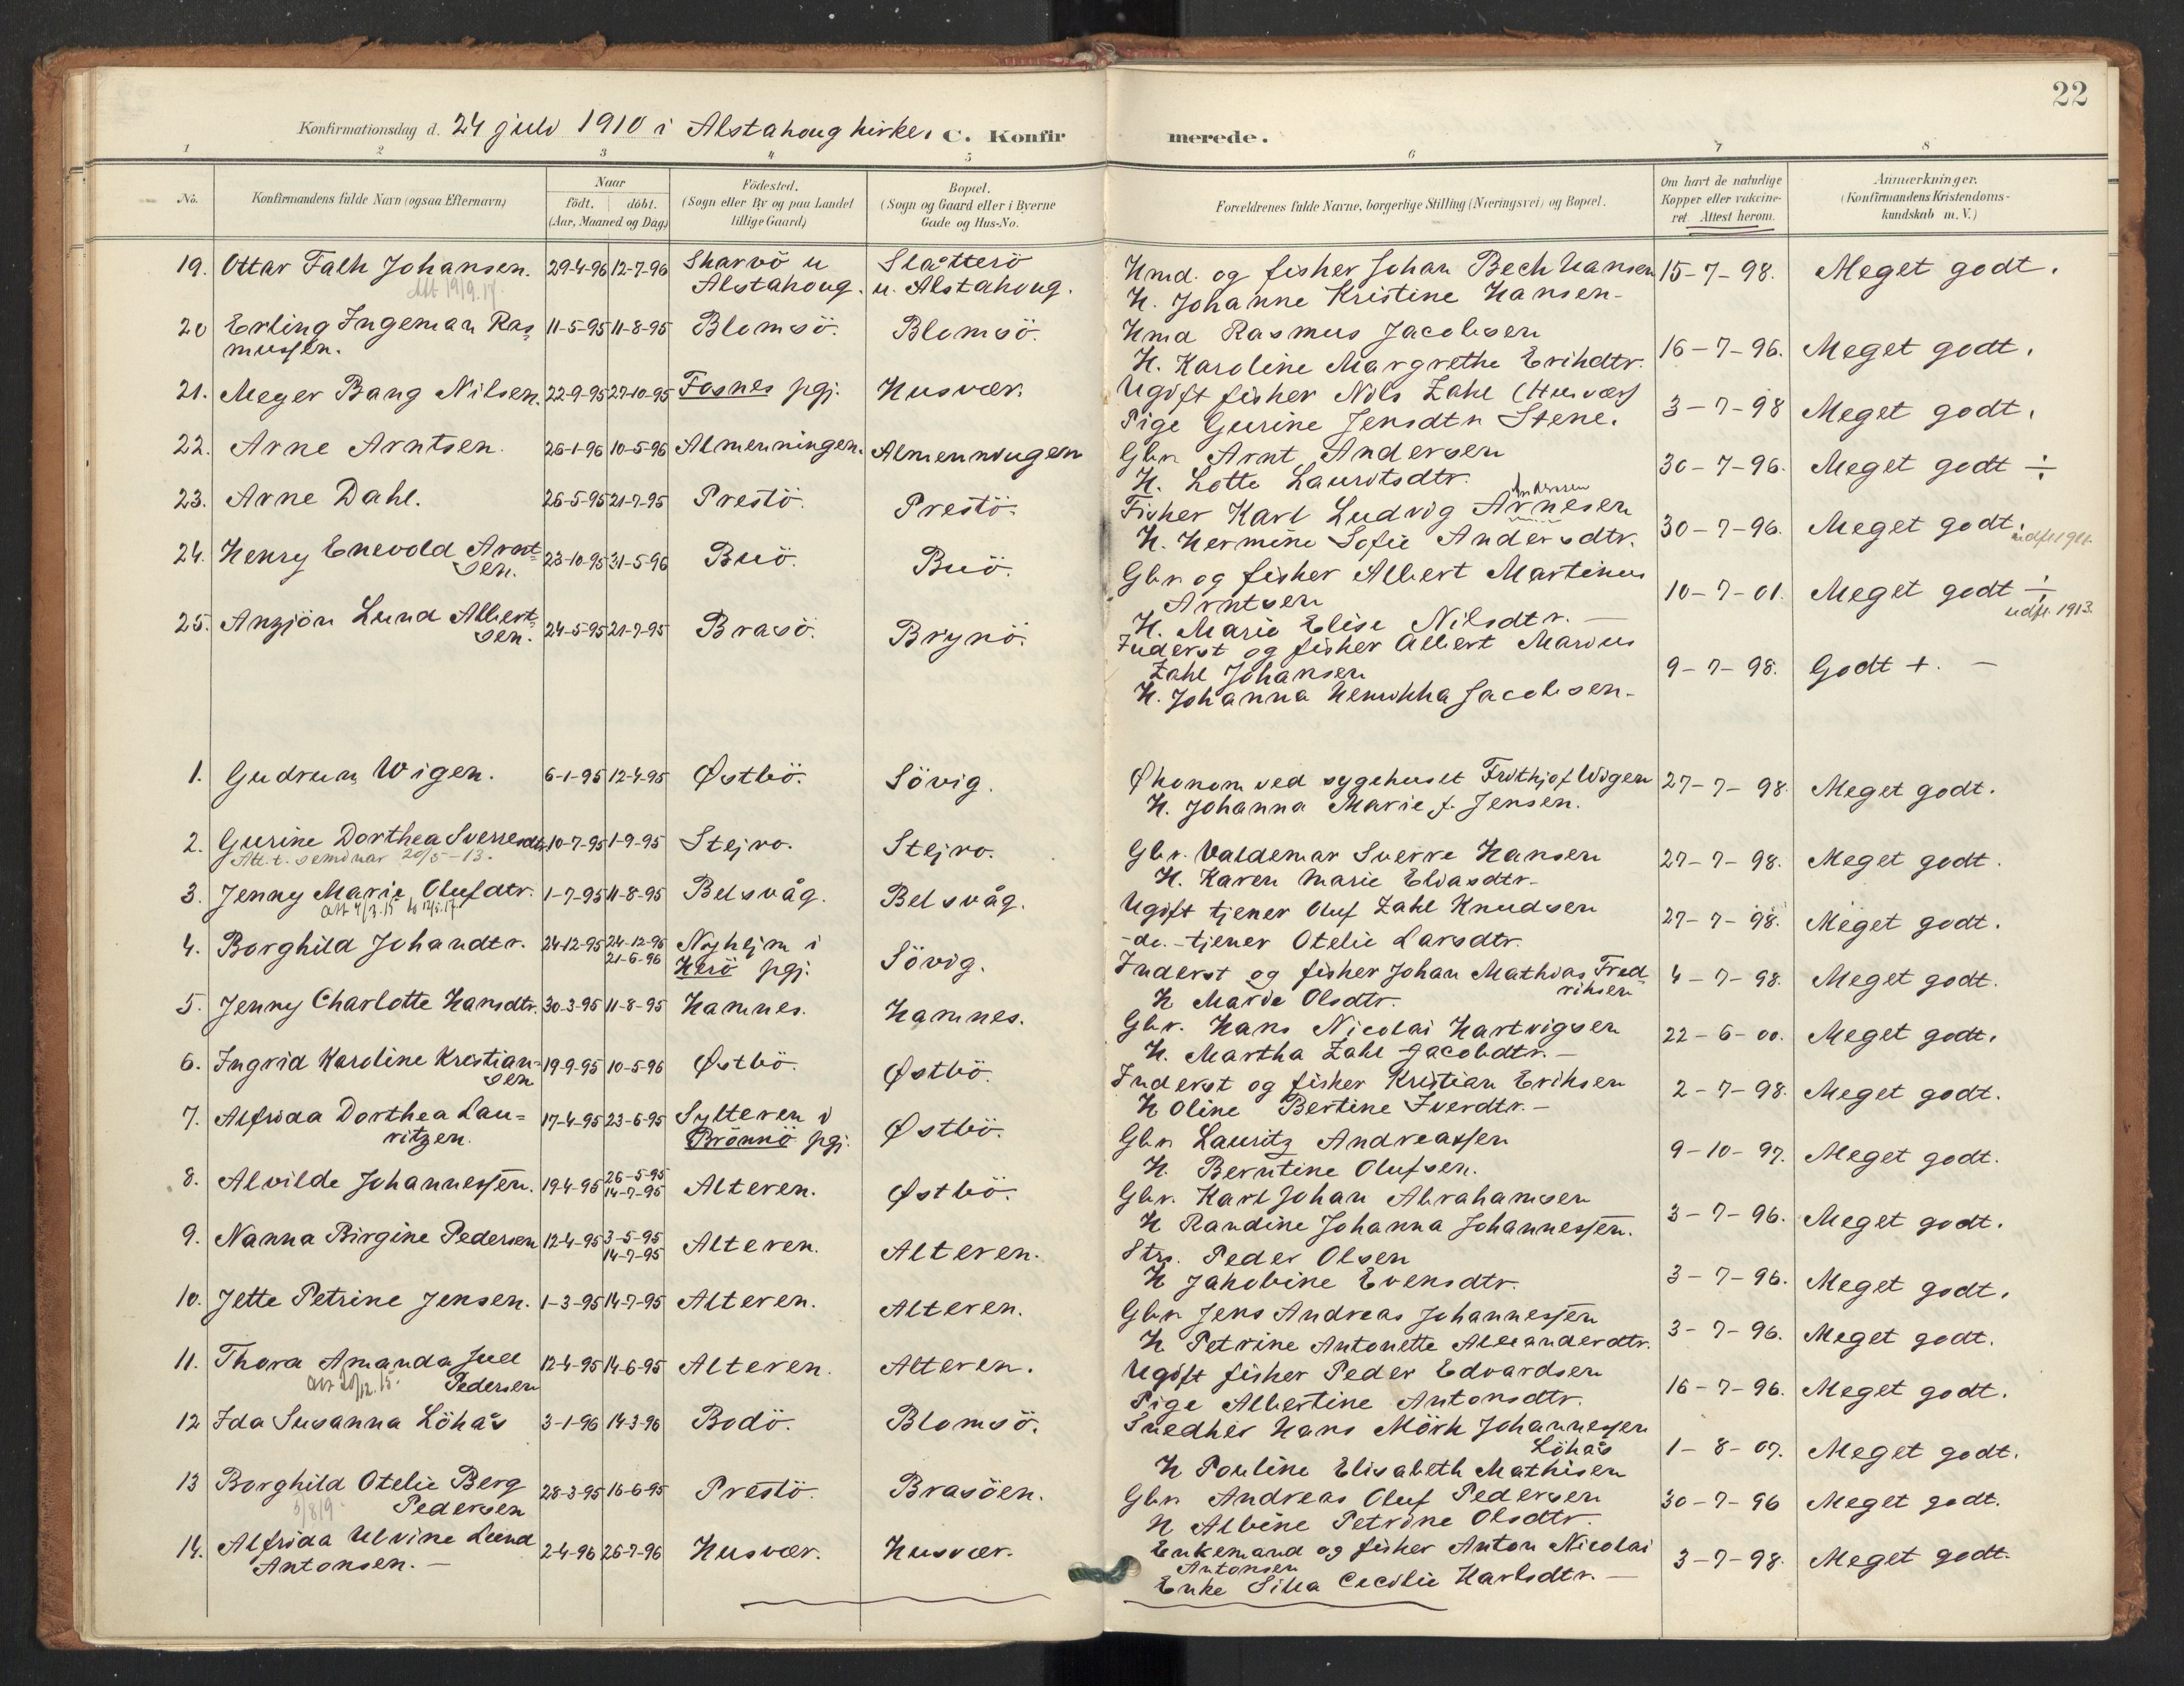 22
Konfirmationsdag d. 24 juli 1910 i Alstahoug kirke. C. Konfirmerede.
1 2 3 4 5 6 7 8
No. Konfirmandens fulde Navn (ogsaa Efternavn)
Naar født. døbt. (Aar, Maaned og Dag)
Födested. (Sogn eller By og paa Landet tillige Gaard)
Bopæl. (Sogn og Gaard eller i Byerne Gade og Hus-No.
Forældrenes fulde Navne, borgerlige Stilling (Næringsvei) og Bopæl.
Om havt de naturlige Kopper eller vakcineret. Attest herom.
Anmærkninger. (Konfirmandens Kristendomskundskab m. V.)
19. Ottar Falk Johansen. 29-4-96 12-7-96 Skarvö u Alstahoug. Slåtterö u. Alstahoug. Hmd. og fisker Johan Bech Hansen 15-7-98. Meget godt.
Att 19/9.17.
H. Johanne Kristine Hansen-
20 Erling Ingeman Ras= 11-5-95 11-8-95 Blomsö. Blomsö. Hmd Rasmus Jacobsen
mussen. H. Karoline Margrethe Erikdtr. 16-7-96. Meget godt.
21. Meyer Bang Nilsen. 22-9-95 27-10-95 Fosnes pgj. Husvær. Ugift fisker Nils Zahl (Husvær)
Pige Gurine Jensdtr Stene. 3-7-98 Meget godt.
22. Arne Arntsen. 26-1-96 10-5-96 Almenningen. Almenningen Gbr. Arnt Andersen
H. Lotte Lauritsdtr. 30-7-96. Meget godt ÷
23. Arne Dahl. 26-5-95 21-7-95 Prestö. Prestö. Fisker Karl Ludvig Arnesen
Andersen
H. Hermine Sofie Andersdtr. 30-7-96. Meget godt.
udfl. 1911.
24. Henry Enevold Arnt= 23-10-95 31-5-96 Buö. Buö. Gbr og fisker Albert Martinus
sen. Arntsen 10-7-01. Meget godt ÷
H. Marie Elise Nilsdtr. -
udfl. 1913.
25. Angjön Lund Albert= 24-5-95 21-7-95 Brasö. Brynö. Inderst og fisker Albert Marius
sen. Zahl Johansen 9-7-98. Godt +. -
H. Johanna Henrikka Jacobsen-
1. Gudrun Wigen. 6-1-95 12-4-95 Østbö. Sövig. Økonom ved sygehuset Frithjof Wigen 27-7-98. Meget godt.
H. Johanna Marie f. Jensen.
2. Gurine Dorthea Sverresdtr. 10-7-95 1-9-95 Stejro. Stejro. Gbr. Valdemar Sverre Hansen 27-7-98. Meget godt.
Att. t. seminar 20/5-13. H. Karen Marie Eliasdtr-
3. Jenny Marie Olufdtr. 1-7-95 11-8-95 Belsvåg. Belsvåg. Ugift tjener Oluf Zahl Knudsen
-do.- tjener Otelie Larsdtr. 27-7-98. Meget godt.
4. Borghild Johandtr. 24-12-95 24-12-95 21-6-96 Nyhejm i Herö pgj. Sövig. Inderst og fisker Johan Mathias Fred=
riksen
H Marie Olsdtr. 4-7-98. Meget godt.
5. Jenny Charlotte Hansdtr. 30-3-95 11-8-95 Hamnes. Hamnes. Gbr. Hans Nicolai Hartvigsen
H. Martha Zahl Jacobdtr. - 22-6-00. Meget godt.
6. Ingrid Karoline Kristian= 19-9-95 10-5-96 Østbö. Østbö. Inderst og fisker Kristian Eriksen
sen H Oline Bertine Iverdtr. - 2-7-98. Meget godt.
7. Alfrida Dorthea Lau= 17-4-95 23-6-95 Sylteren i Brönnö pgj. Østbö. Gbr Lauritz Andreassen
ritzen. H. Berntine Olufsen. 9-10-97. Meget godt.
8. Alvilde Johannessen. 19-4-95 26-5-95 14-7-95 Alteren. Østbö. Gbr. Karl Johan Abrahamsen
H Randine Johanna Johannessen. 3-7-96. Meget godt.
9. Nanna Birgine Pedersen 12-4-95 3-5-95 14-7-95 Alteren. Alteren. Str. Peder Olsen
H Jakobine Evensdtr. 3-7-96. Meget godt.
10. Jette Petrine Jensen. 1-3-95 14-7-95 Alteren. Alteren. Gbr Jens Andreas Johannessen
H Petrine Antonette Alexanderdtr. 3-7-96. Meget godt.
11. Thora Amanda Jull 12-4-95 14-6-95 Alteren. Alteren. Ugift fisker Peder Edvardsen
Pedersen Pige Albertine Antonsdtr. 16-7-96. Meget godt.
12 Ida Susanna Löhås 3-1-96 14-3-96 Bodö. Blomsö. Snedker Hans Mörk Johannessen
Löhås 1-8-07. Meget godt.
H Pauline Elisabeth Mathisen
13 Borghild Otelie Berg 28-3-95 16-6-95 Prestö. Brasöen. Gbr Andreas Oluf Pedersen 30-7-96 Meget godt.
Pedersen H Albine Petrine Olsdtr.
14. Alfrida Elvine Lund 2-4-96 26-7-96 Husvær. Husvær. Enkemand og fisker Anton Nicolai
Antonsen. - Antonsen 3-7-98. Meget godt.
Enke Silla Cecilie Karlsdtr. -